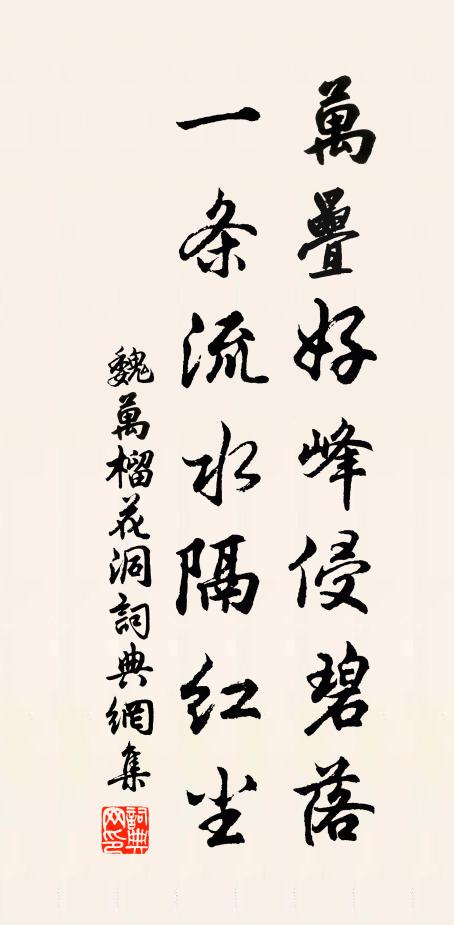 萬疊好峰侵碧落
一条流水隔红尘
魏萬榴花洞詞典網集
詞典網印